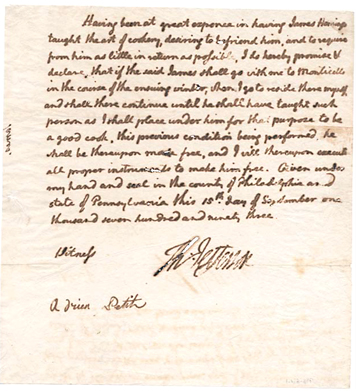 Having been at great expence in having James Hemings
taught the art of cookery, desiring to befriend him, and to require
from him as little in return as possible, I do hereby promise &
declare, that if the said James shall go with me to Monticello
in the course of the ensuing winter, when I go to reside there myself,
and shall there continue until he shall have taught such
person as I shall place under him for that purpose to be
a good cook, this previous condition being performed, he
shall be thereupon made free, and I will thereupon execute
all proper instruments to make him free. Given under
my hand and seal in the county of Philadelphia and
state of Pennsylvania this 15th day of September one
thousand seven hundred and ninety three.
Witness
Th: Jefferson
Adrien Petit